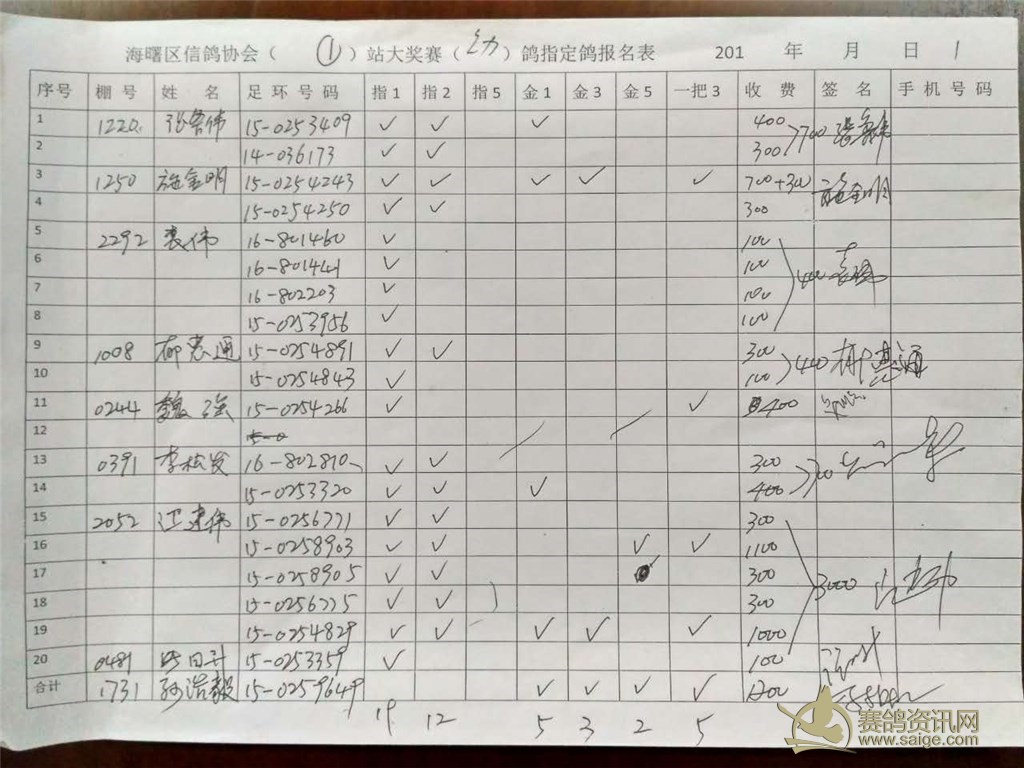 海曙区信鸽协会( ① )站大奖赛( 幼 )鸽指定鸽报名表 201 年 月 日 1
序号 棚号 姓名 足环号码 指1 指2 指5 金1 金3 金5 一把3 收费 签名 手机号码
1 1220 15-0253409 ✓ ✓ ✓ 400
2 14-036173 ✓ ✓ 300 700
3 1250 施金明 15-0254243 ✓ ✓ ✓ ✓ ✓ 700+300 施金明
4 15-0254250 ✓ ✓ 300
5 2292 袁伟 16-801460 ✓ 100
6 16-801441 ✓ 100
7 16-802203 ✓ 100 400
8 15-0253956 ✓ 100
9 1008 柳惠通 15-0254891 ✓ ✓ 300
10 15-0254843 ✓ 100 400
11 0244 魏强 15-0254266 ✓ ✓ 400
12 15-0
13 0391 李松发 16-802810 ✓ ✓ 300
14 15-0253320 ✓ ✓ ✓ 400 700
15 2052 江建伟 15-0256771 ✓ ✓ 300
16 15-0258903 ✓ ✓ ✓ ✓ 1100
17 15-0258905 ✓ ✓ 300
18 15-0256775 ✓ ✓ 300 3000
19 15-0254829 ✓ ✓ ✓ ✓ ✓ 1000
20 0481 15-0253359 ✓ 100
合计 1731 孙浩毅 15-0259649 ✓ ✓ ✓ ✓ 1200
19 12 5 3 2 5
赛鸽资讯网
www.saige.com